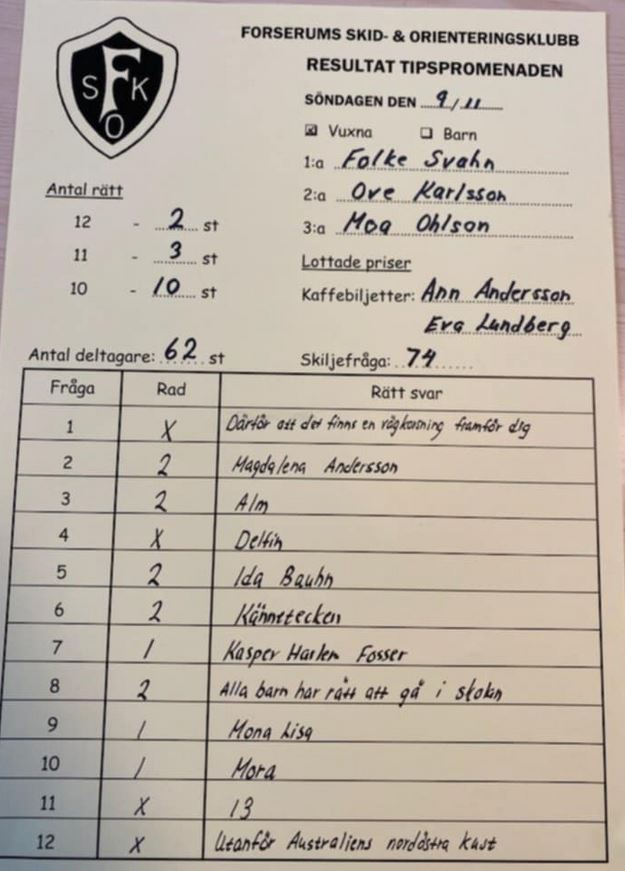 SFKO
FORSERUMS SKID- & ORIENTERINGSKLUBB
RESULTAT TIPSPROMENADEN
SÖNDAGEN DEN 9/11
☒ Vuxna ☐ Barn
1:a Folke Svahn
2:a Ove Karlsson
3:a Moa Ohlson
Antal rätt
12 - 2 st
11 - 3 st
10 - 10 st
Lottade priser
Kaffebiljetter: Ann Andersson
Eva Lundberg
Antal deltagare: 62 st
Skiljefråga: 74
Fråga Rad Rätt svar
1 X Därför att det finns en vägkorsning framför dig
2 2 Magdalena Andersson
3 2 Alm
4 X Delfin
5 2 Ida Bauhn
6 2 Kännetecken
7 1 Kasper Harlem Fosser
8 2 Alla barn har rätt att gå i skolan
9 1 Mona Lisa
10 1 Mora
11 X 13
12 X Utanför Australiens nordöstra kust